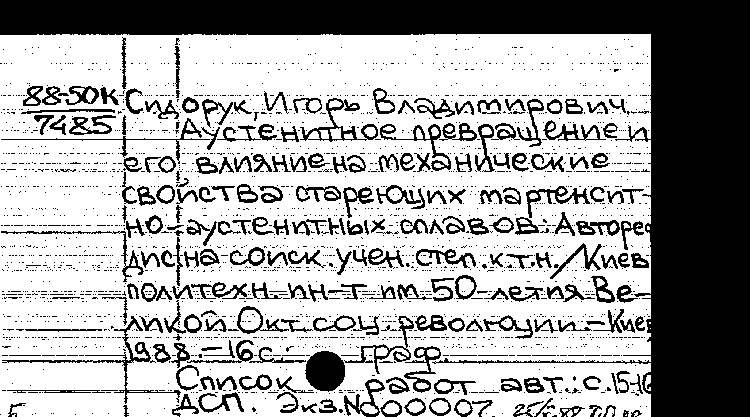 88-50К
7485
Сидорук, Игорь Владимирович
Аустенитное превращение и
его влияние на механические
свойства стареющих мартенсит-
но-аустенитных сплавов: Авторе
дис на соиск. учен. степ. к.т.н. / Киев
политехн. ин-т им. 50-летия Ве-
ликой Окт. соц. революции. - Кие
1988. - 16 с. граф.
Список работ авт.: с. 15-16
ДСП. Экз. № 000007.